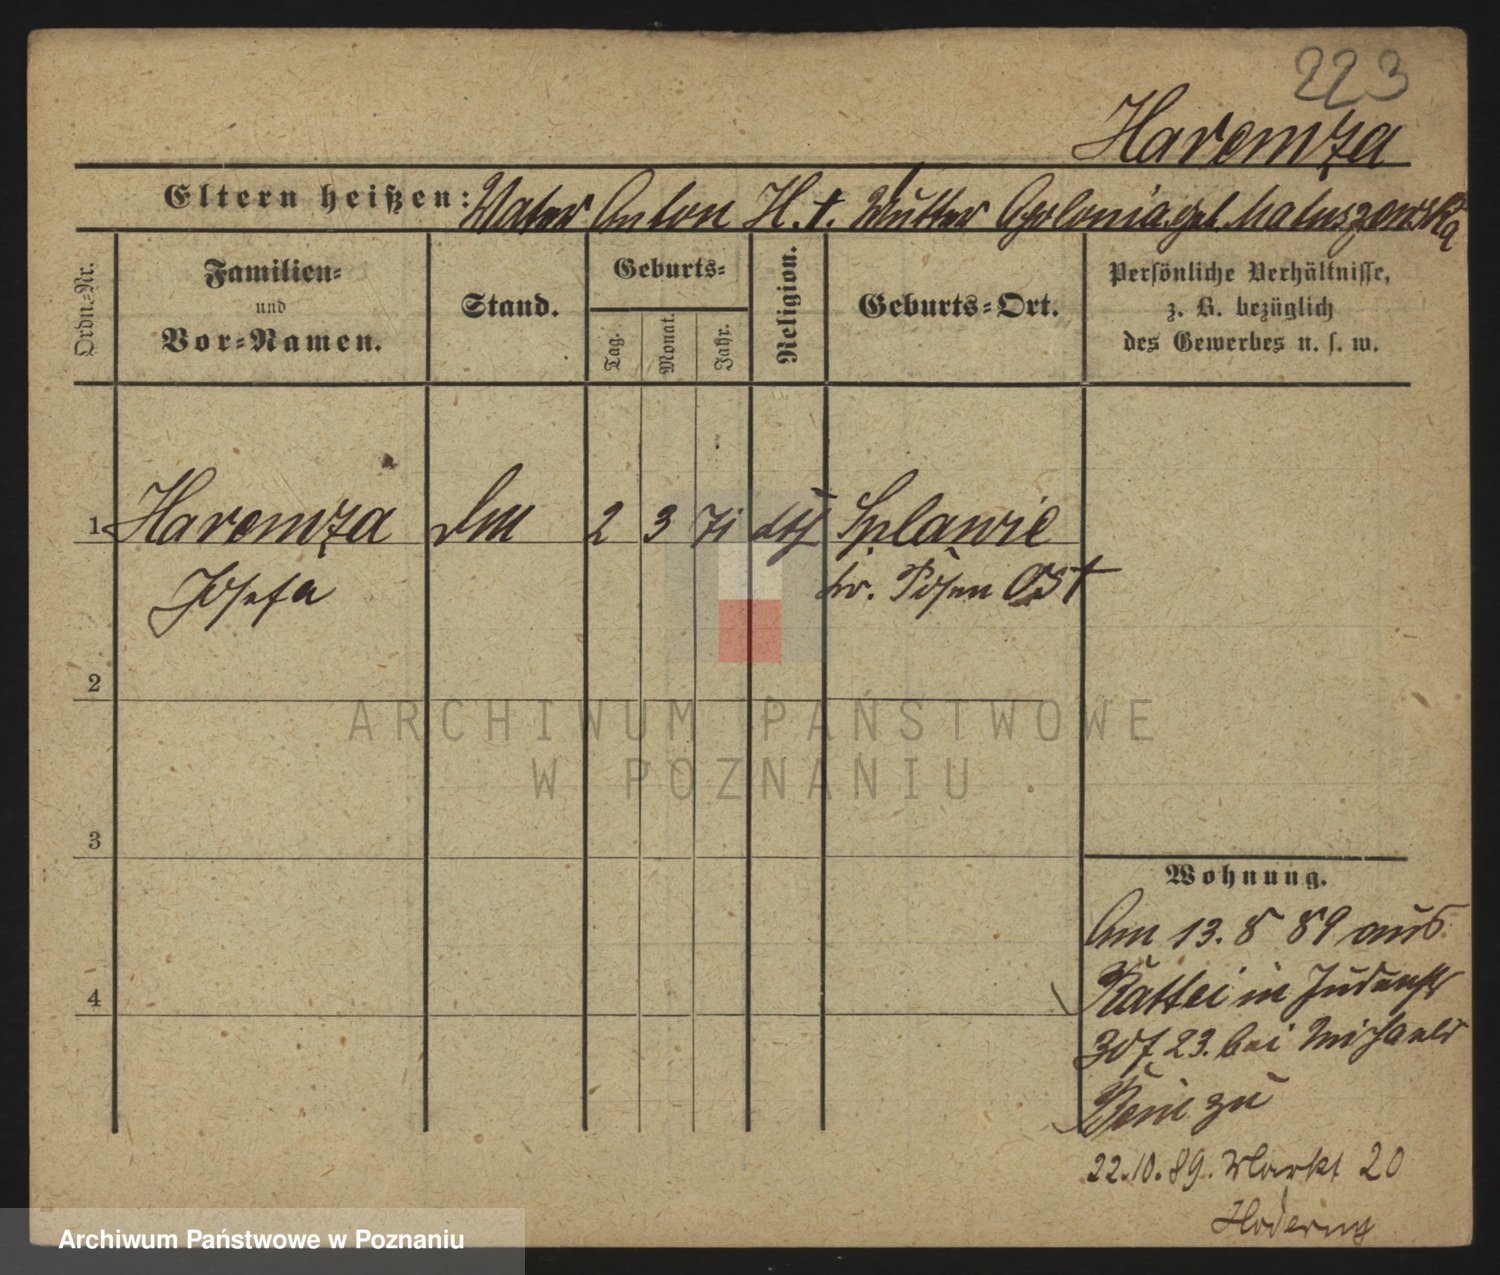 223
Haremza
Eltern heißen: Vater Anton H. †. Mutter Apolonia geb. Matuszewska
Ordn.-Nr.
Familien- und Vor-Namen.
Stand.
Geburts-
Tag.
Monat.
Jahr.
Religion.
Geburts-Ort.
Persönliche Verhältnisse,
z. B. bezüglich
des Gewerbes u. s. w.
1 Haremza 2 3 71 kth Splawie
Josefa kr. Posen Ost
2
3
4
Wohnung.
Am 13. 8 89 aus
Rattai in Judenstr
30 f 23. bei Michaelis
zu
22.10.89. Markt 20
ARCHIWUM PAŃSTWOWE
W POZNANIU
Archiwum Państwowe w Poznaniu